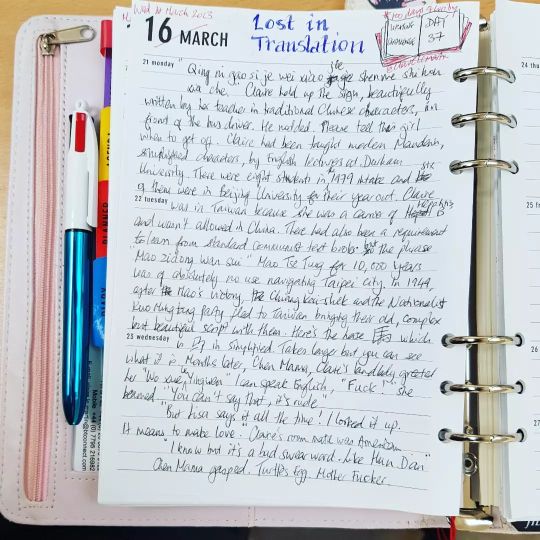 Wed 16 March 2023
16 MARCH
Lost in
Translation
#100 days
WRITING
CHALLENGE
DAY
37
21 monday
"Qing ni gaosi je wei xiao jie shenme shihou
xia che." Claire held up the sign, beautifully
written by her teacher in traditional Chinese characters, in
front of the bus driver. He nodded. Please tell this girl
when to get off. Claire had been taught modern Mandarin,
simplified characters, by English lecturers at Durham
University. There were eight students in the 1979 intake and six
of them were in Beijing University for their year out. Claire
22 tuesday
was in Taiwan because she was a carrier of Hepatitis B
and wasn't allowed in China. There had also been a requirement
to learn from standard communist text books but the phrase
Mao zidong wan sui" Mao Tse Tung for 10,000 years
was of absolutely no use navigating Taipei city. In 1949,
after Mao's victory, Chiang kai shek and the Nationalist
Kuo Ming tang party fled to Taiwan bringing their old, complex
but beautiful script with them. Here's the horse 馬 which
23 wednesday
is 马 in simplified. Takes longer but you can see
what it is. Months later, Chen Mama, Claire's landlady greeted
her "Wo Yingwen" I can speak English, "Fuck!" she
beamed. "You can't say that, it's rude!"
"But Lisa says it all the time! I looked it up.
It means to make love." Claire's room mate was American
"I know but it's a bad swear word. Like Hun Dan"
Chen Mama gasped. Turtle's Egg. Mother Fucker
24 thu
25 fri
DIARY
Mobile +44 (0) 7795 216982